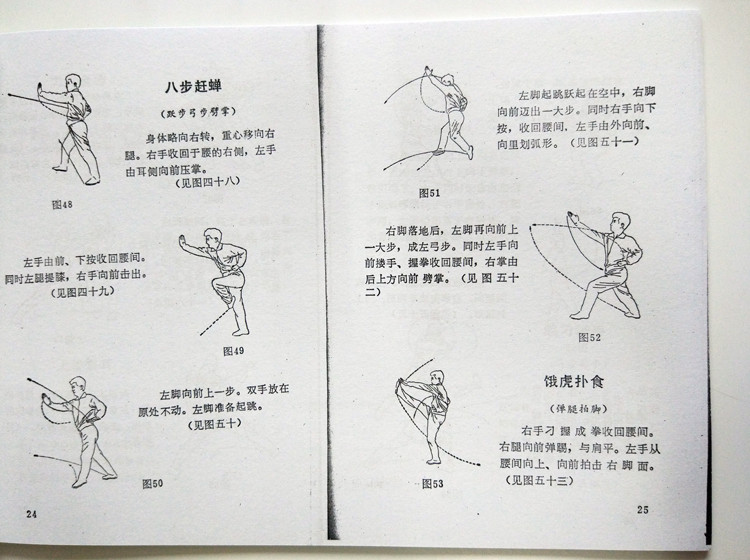 八步赶蝉
（跃步弓步劈掌）
身体略向右转，重心移向右
腿。右手收回于腰的右侧，左手
由耳侧向前压掌。
（见图四十八）
图48
左手由前、下按收回腰间。
同时左腿提膝，右手向前击出。
（见图四十九）
图49
左脚向前上一步。双手放在
原处不动。左脚准备起跳。
（见图五十）
图50
24
左脚起跳跃起在空中，右脚
向前迈出一大步。同时右手向下
按，收回腰间，左手由外向前、
向里划弧形。（见图五十一）
图51
右脚落地后，左脚再向前上
一大步，成左弓步。同时左手向
前搂手、握拳收回腰间，右掌由
后上方向前劈掌。（见图五十
二）
图52
饿虎扑食
（弹腿拍脚）
右手刁握成拳收回腰间。
右腿向前弹踢，与肩平。左手从
腰间向上、向前拍击右脚面。
（见图五十三）
图53
25